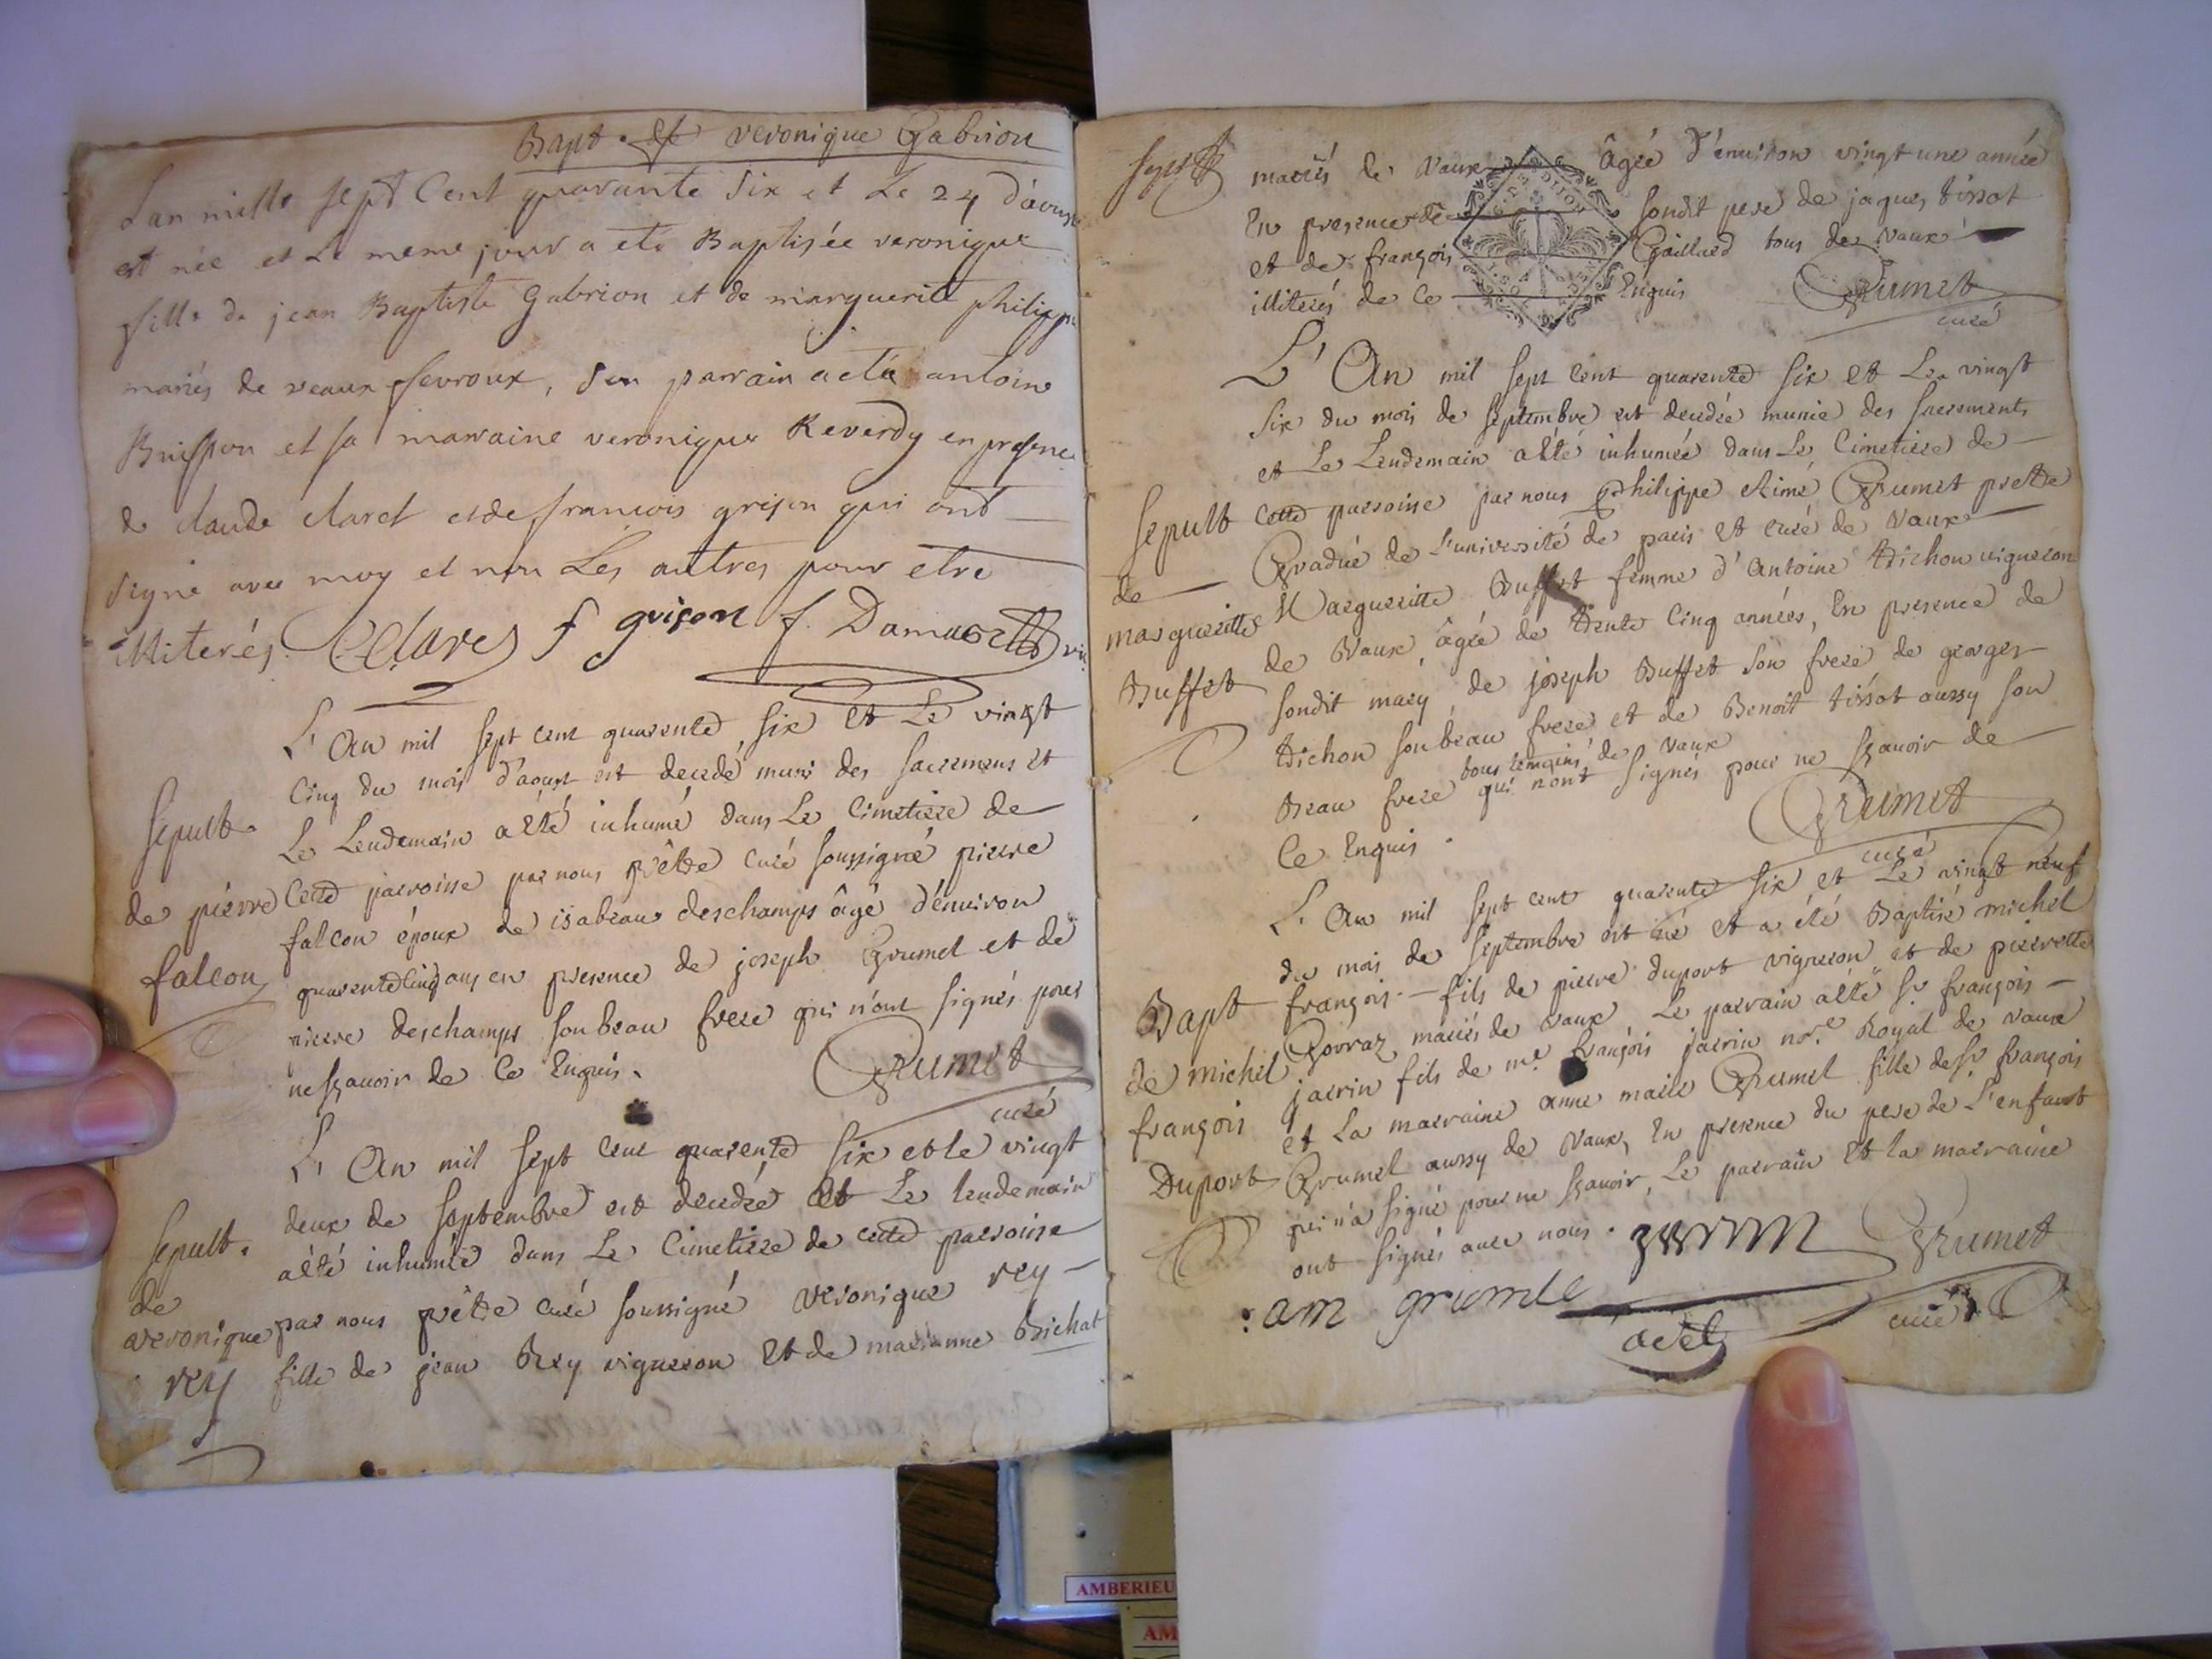 Bapt. de veronique Gabrion
L'an mille sept Cent quarante six et Le 24 d'aoust
est née et Le meme jour a eté Baptisée veronique
fille de jean Baptiste Gabrion et de marguerite philippe
mariés de veaux fevroux, son parrain a eté antoine
Buisson et sa marraine veronique Reverdy en presence
de claude claret et de francois grison qui ont
signé avec moy et non Les autres pour etre
illiterés. Claret f grison f. Damas
L'An mil sept cent quarente six et Le vingt
Cinq du mois d'aoust est decedé muni des sacremens et
Le Lendemain a été inhumé dans Le Cimetiere de
Cette parroisse par nous prêtre curé soussigné pierre
falcon époux de isabeau deschamps âgé d'environ
quarente cinq ans en presence de joseph Grumel et de
pierre deschamps son beau frere qui n'ont signés pour
ne sçavoir de Ce Enquis.
Grumet
curé
Sepult.
de pierre
falcon
L'An mil sept cent quarente six et le vingt
deux de septembre est decedée et Le lendemain
a été inhumée dans Le Cimetiere de cette parroisse
par nous prêtre curé soussigné veronique rey
fille de jean Rey vigneron et de marianne Bichat
Sepult.
de
veronique
rey
mariés de Vaux âgée d'environ vingt une année
En presence de sondit pere de jaques tissot
et de françois Gaillard tous de Vaux
illiterés de Ce Enquis
Grumet
curé
L'An mil sept cent quarente six et Le vingt
six du mois de septembre est decedée munie des sacrements
et Le Lendemain a été inhumée dans Le Cimetiere de
cette parroisse par nous Philippe Aimé Grumet prettre
Gradué de L'université de paris et curé de Vaux
Margueritte Buffet femme d'Antoine Trichon vigneron
de Vaux, âgée de trente Cinq années, En presence de
sondit mary, de joseph Buffet son frere de georges
trichon son beau frere et de Benoît tissot aussy son
tous temoins de Vaux
Beau frere qui n'ont signés pour ne sçavoir de
Ce Enquis.
Grumet
curé
Sepult
de
margueritte
Buffet
L'An mil sept cent quarente six et Le vingt neuf
du mois de septembre est né et a été Baptisé michel
françois fils de pierre duport vigneron et de pierrette
Govraz mariés de Vaux Le parrain a été sr. françois
jacrin fils de me. françois jacrin nore. Royal de Vaux
et La marraine anne marie Grumel fille de sr. françois
Grumel aussy de Vaux, En presence du pere de L'enfant
qui n'a signé pour ne sçavoir, Le parrain et la marraine
ont signés avec nous.
Grumet
curé
Bapt
de michel
françois
Duport